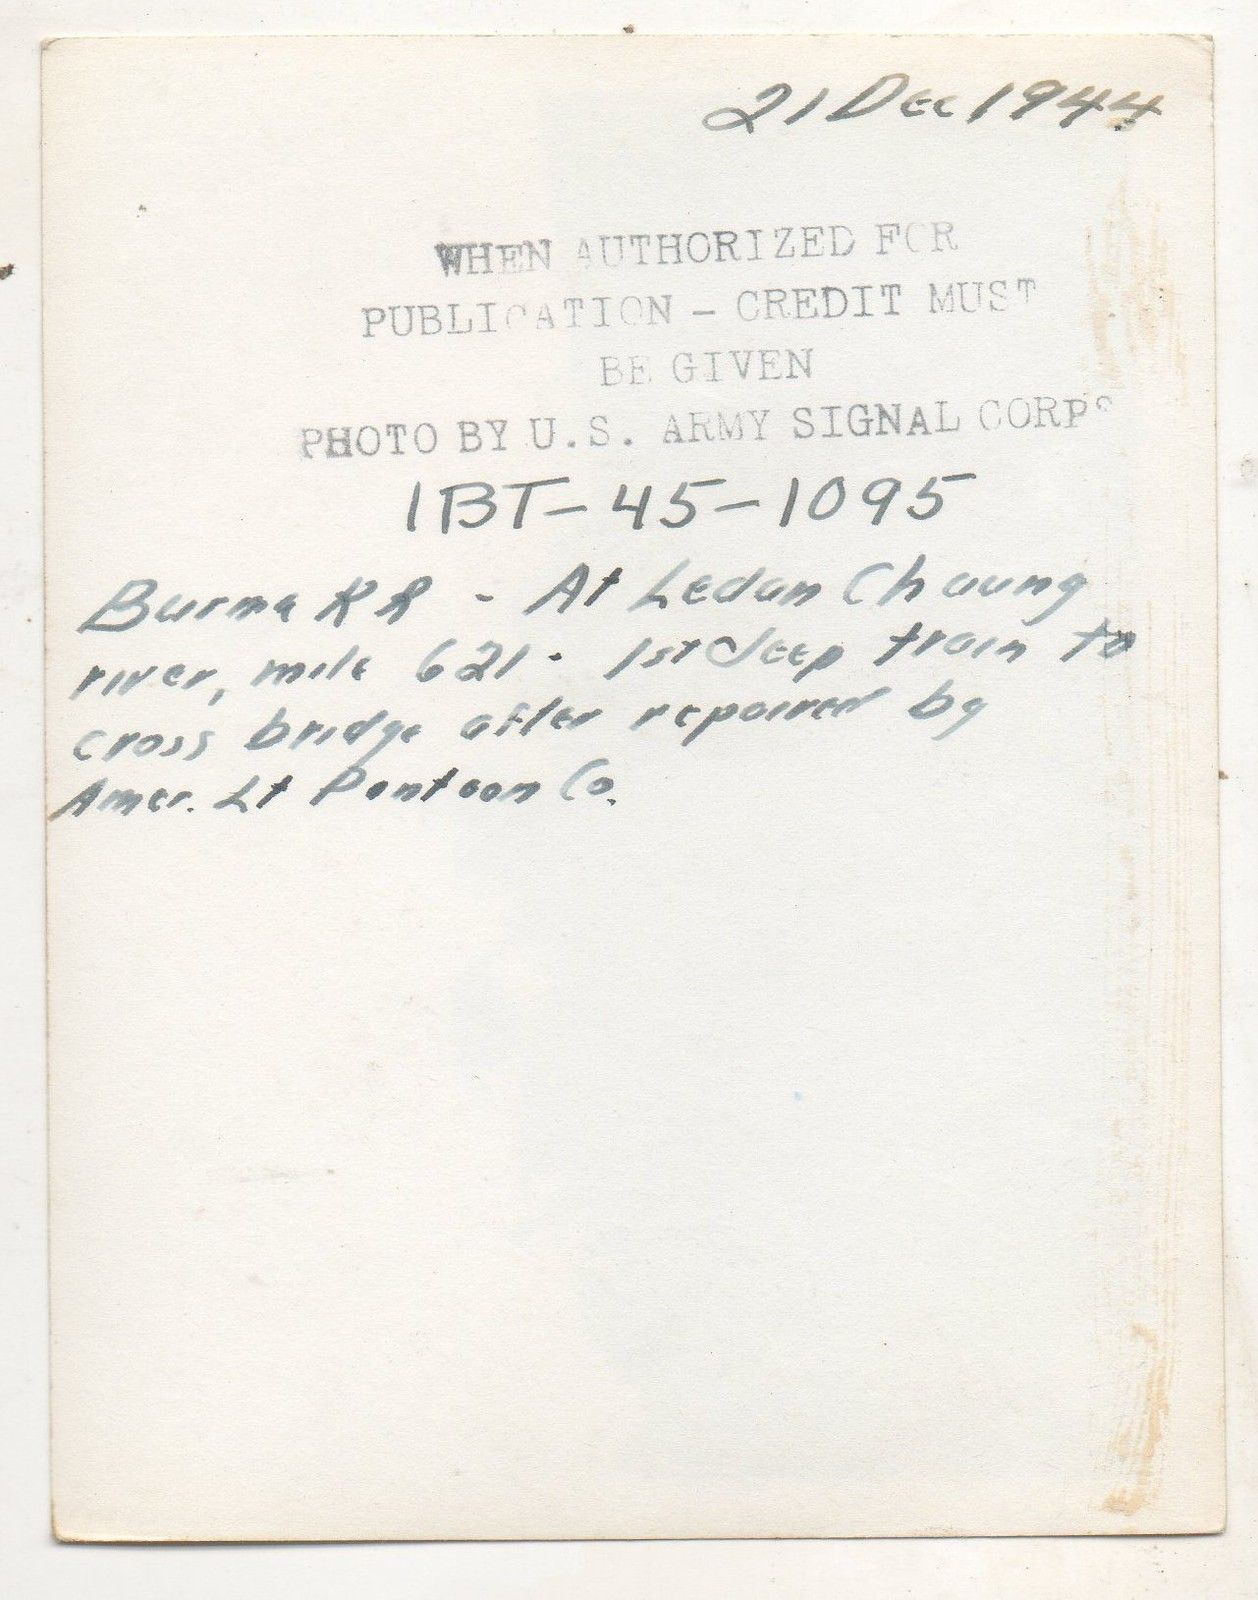 21 Dec 1944
WHEN AUTHORIZED FOR
PUBLICATION – CREDIT MUST
BE GIVEN
PHOTO BY U.S. ARMY SIGNAL CORPS
IBT-45-1095
Burma RR - At Ledan Chaung
river, mile 621 - 1st Jeep train to
cross bridge after repaired by
Amer. Lt Pontoon Co.